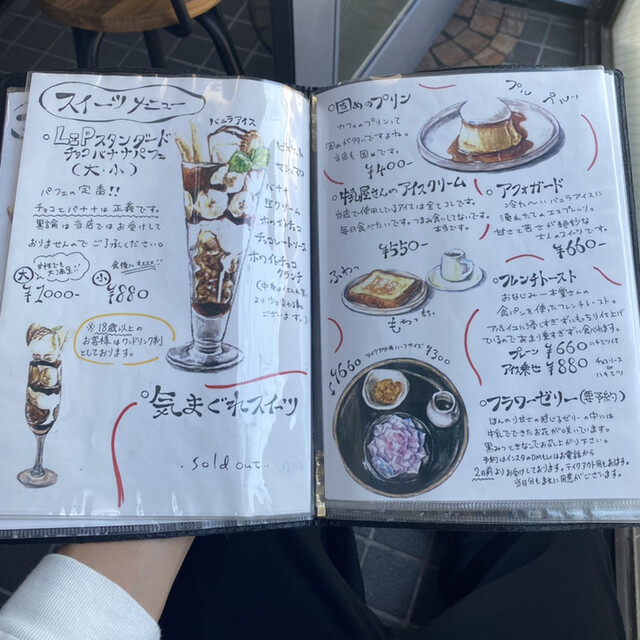 スイーツメニュー
LIPスタンダード
チョコバナナパフェ
(大・小)
パフェの定番!!
チョコとバナナは正義です。
異論は当店ではお受けして
おりませんのでご了承ください。
大
¥1000-
小
¥880
※18歳以上の
お客様はワンドリンク制
としております。
バニラアイス
バナナ
生クリーム
チョコレートソース
ホワイトチョコ
クランチ
気まぐれスイーツ
.sold out..
固めのプリン
カフェのプリンって
固めがタマですよね。
当店も固めです。
¥400-
プルッ
牛乳屋さんのアイスクリーム
当店で使用しているアイスは全てコレです。
毎日食べたいです。つまみ食いしてないです。
本当です。
¥550-
アフォガード
冷たい〜バニラアイスに
淹れたてのエスプレッソ。
甘さと苦さが絶妙な
¥660-
ふわっ
もちっ
フレンチトースト
おなじみ一本堂さんの
食パンを使ったフレンチトースト。
プレーン ¥660 ハチミツ付
アイス乗せ ¥880 チョコソース
or
ハチミツ
¥660
テイクアウト用
¥300
フラワーゼリー(要予約)
ほんのり甘さの感じるゼリーの中には
牛乳でできたお花が咲いています。
黒みつときなこでお召し上がり下さい。
予約はインスタのDMもしくはお電話から
2日前よりお受けしております。テイクアウト用もあります。
当日分もまれに用意がございます。